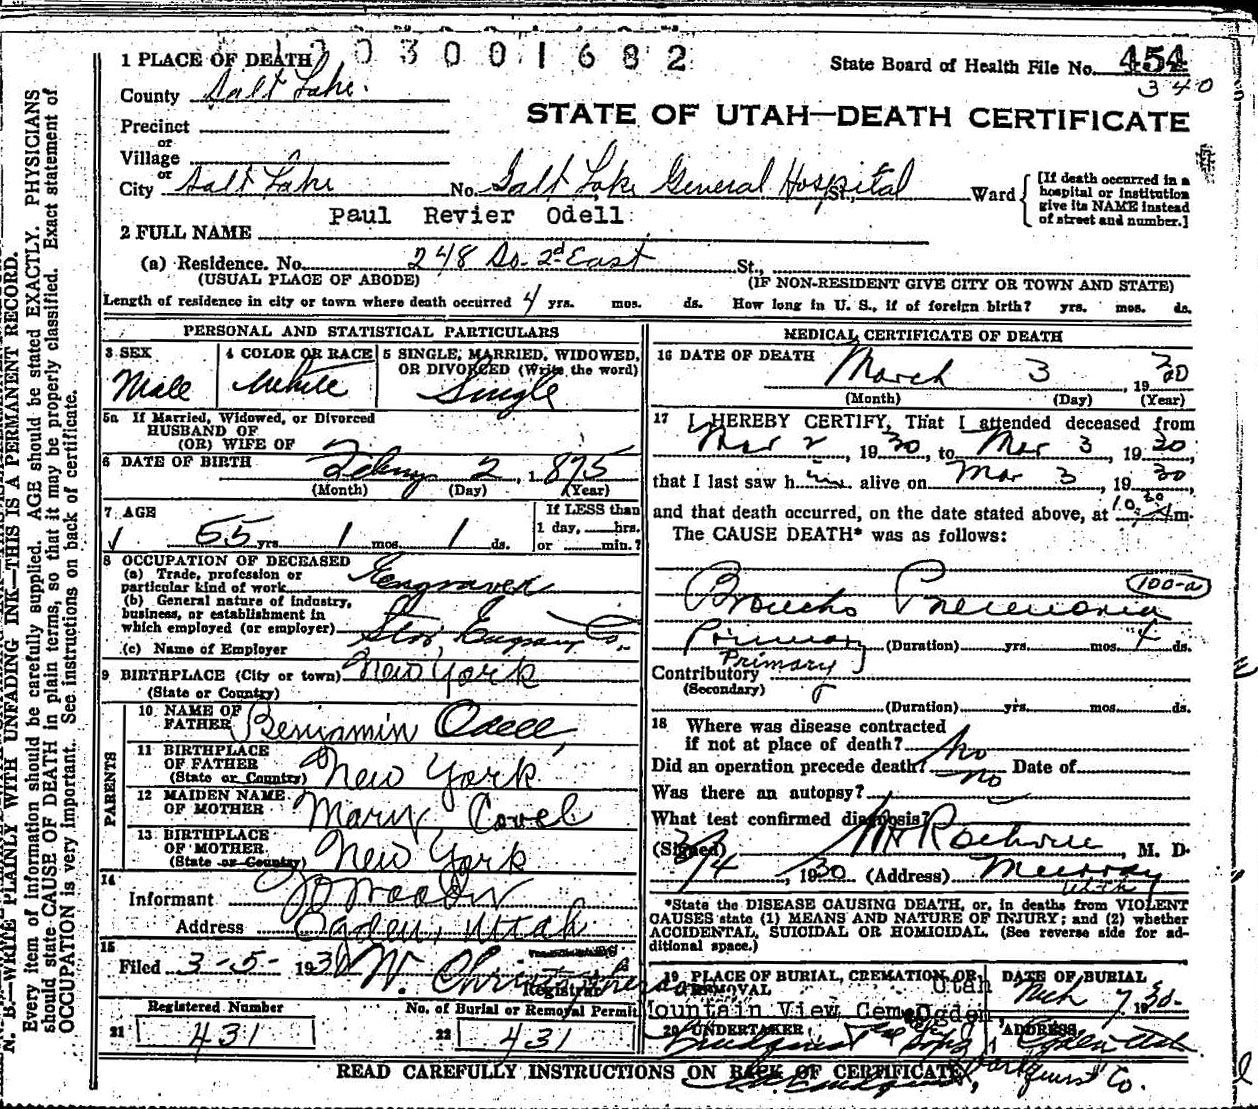 1 PLACE OF DEATH
3001682
State Board of Health File No. 454
340
County Salt Lake.
STATE OF UTAH—DEATH CERTIFICATE
Precinct
or
Village
or
City Salt Lake No. Salt Lake General Hospital St., Ward
[If death occurred in a
hospital or institution
give its NAME instead
of street and number.]
Paul Revier Odell
2 FULL NAME
(a) Residence. No. 248 So. 2d East St.,
(USUAL PLACE OF ABODE) (IF NON-RESIDENT GIVE CITY OR TOWN AND STATE)
Length of residence in city or town where death occurred 4 yrs. mos. ds. How long in U. S., if of foreign birth? yrs. mos. ds.
PERSONAL AND STATISTICAL PARTICULARS
3 SEX
Male
4 COLOR OR RACE
White
5 SINGLE, MARRIED, WIDOWED,
OR DIVORCED (Write the word)
Single
5a If Married, Widowed, or Divorced
HUSBAND OF
(OR) WIFE OF
6 DATE OF BIRTH 2, 1875
(Month) (Day) (Year)
7 AGE
55 yrs. 1 mos. 1 ds.
If LESS than
1 day, hrs.
or min.?
8 OCCUPATION OF DECEASED
(a) Trade, profession or
particular kind of work Engraver
(b) General nature of industry,
business, or establishment in
which employed (or employer) Engrav Co.
(c) Name of Employer
9 BIRTHPLACE (City or town) New York
(State or Country)
PARENTS
10 NAME OF
FATHER Benjamin Odell,
11 BIRTHPLACE
OF FATHER
(State or Country) New York
12 MAIDEN NAME
OF MOTHER Mary Covel
13 BIRTHPLACE
OF MOTHER
(State or Country) New York
14
Informant
Address Ogden, Utah
15
Filed 3-5- 1930 W. Christopherson
Registrar
Registered Number
No. of Burial or Removal Permit
21 431
22 431
MEDICAL CERTIFICATE OF DEATH
16 DATE OF DEATH
March 3, 1930
(Month) (Day) (Year)
17 I HEREBY CERTIFY, That I attended deceased from
Mar 2, 1930, to Mar 3 1930,
that I last saw him alive on Mar 3, 1930,
and that death occurred, on the date stated above, at 10.30 A m.
The CAUSE DEATH* was as follows:
100-a
Broncho Pneumonia
Primary (Duration) yrs. mos. 4 ds.
Primary
Contributory
(Secondary)
(Duration) yrs. mos. ds.
18 Where was disease contracted
if not at place of death?
Did an operation precede death? no Date of
Was there an autopsy? no
What test confirmed diagnosis?
(Signed) M. D.
3/4, 1930 (Address) Murray
Utah
*State the DISEASE CAUSING DEATH, or, in deaths from VIOLENT
CAUSES state (1) MEANS AND NATURE OF INJURY; and (2) whether
ACCIDENTAL, SUICIDAL OR HOMICIDAL. (See reverse side for ad-
ditional space.)
19 PLACE OF BURIAL, CREMATION, OR
REMOVAL Utah
Mountain View Cem Ogden
DATE OF BURIAL
Mch 7 1930
20 UNDERTAKER
ADDRESS
Ogden Utah
READ CAREFULLY INSTRUCTIONS ON BACK OF CERTIFICATE
N. B.—WRITE PLAINLY WITH UNFADING INK—THIS IS A PERMANENT RECORD.
Every item of information should be carefully supplied. AGE should be stated EXACTLY. PHYSICIANS
should state CAUSE OF DEATH in plain terms, so that it may be properly classified. Exact statement of
OCCUPATION is very important. See instructions on back of certificate.